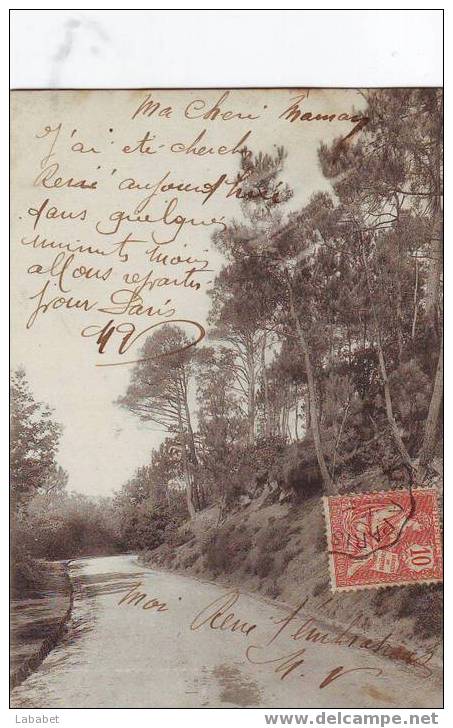 Ma Cheri Maman
J'ai ete cherch
René aujourd'hui
dans quelques
minuts nous
allons repartir
pour Paris
Moi René t'embrasse
M. V
10
PARIS
Lababet
www.delcampe.net